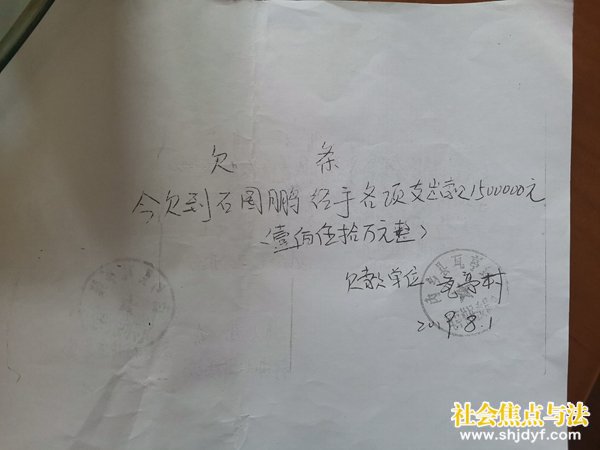 欠 条
今欠到石国鹏经手各项支出款1500000元
(壹佰伍拾万元整)
欠款单位 瓦亭村
2019.8.1
社会焦点与法
www.shjdyf.com